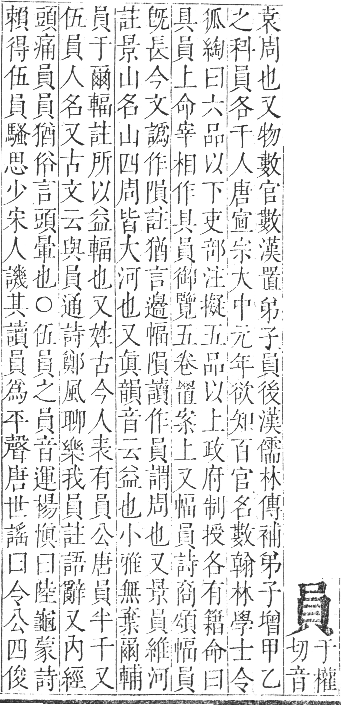 員于權
切音
袁周也又物數官數漢置弟子員後漢儒林傳補弟子增甲乙
之科員各千人唐宣宗大中元年欲知百官名數翰林學士令
狐綯曰六品以下吏部注擬五品以上政府制授各有籍命曰
具員上命宰相作具員御覽五卷置案上又幅員詩商頌幅員
旣長今文譌作隕註猶言邊幅隕讀作員謂周也又景員維河
註景山名山四周皆大河也又眞韻音云益也小雅無棄爾輔
員于爾輻註所以益輻也又姓古今人表有員公唐員半千又
伍員人名又古文云與員通詩鄭風聊樂我員註語辭又內經
頭痛員員猶俗言頭暈也○伍員之員音運楊愼曰陸龜蒙詩
賴得伍員騷思少宋人譏其讀員爲平聲唐世謠曰令公四俊